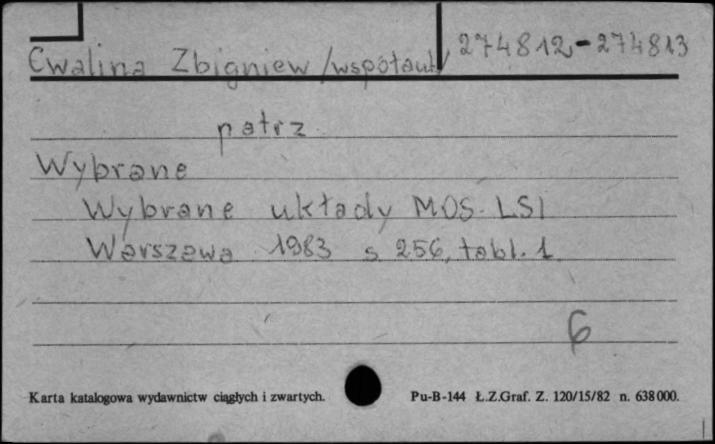 Cwalina Zbigniew /współaut/ 274812-274813
patrz
Wybrane
Wybrane układy MOS-LSI
Warszawa 1983 s 256, tabl. 1
6
Karta katalogowa wydawnictw ciągłych i zwartych. Pu-B-144 Ł.Z.Graf. Z. 120/15/82 n. 638000.